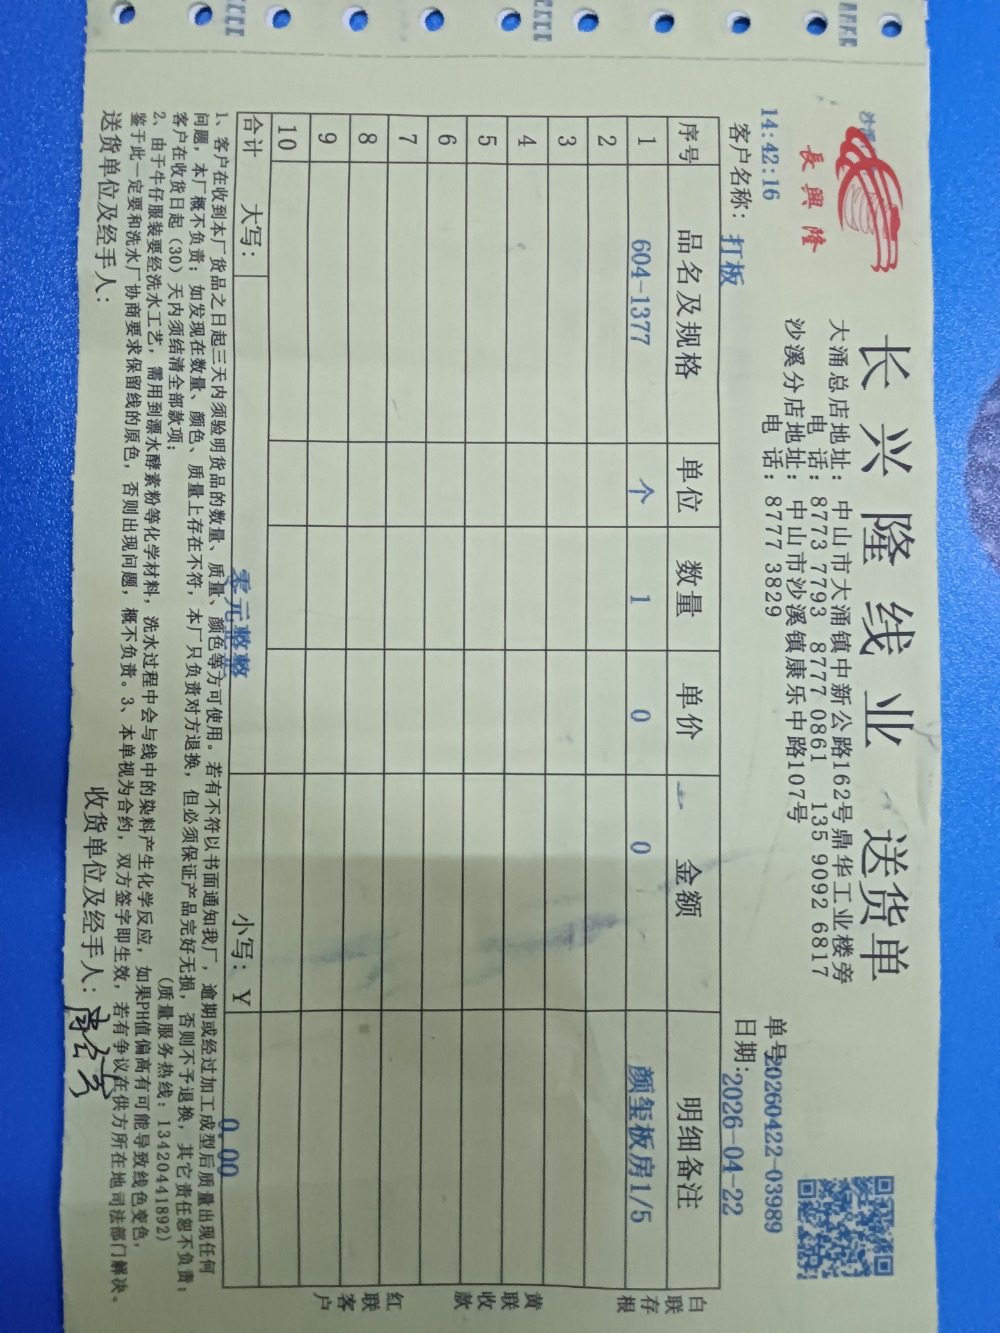 長興隆
长兴隆线业 送货单
大涌总店地址: 中山市大涌镇中新公路162号鼎华工业楼旁
电 话: 8773 7793 8777 0861 135 9092 6817
沙溪分店地址: 中山市沙溪镇康乐中路107号
电 话: 8777 3829
14:42:16
单号20260422-03989
客户名称: 打板
日期: 2026-04-22
序号 品名及规格 单位 数量 单价 金额 明细备注
1 604-1377 个 1 0 0 颜玺板房1/5
2
3
4
5
6
7
8
9
10
合计 大写: 零元整整 小写: Y 0.00
白联存根
黄联收款
红联客户
1、客户在收到本厂货品之日起三天内须验明货品的数量、质量、颜色等方可使用。若有不符以书面通知我厂，逾期或经过加工成型后质量出现任何
问题，本厂概不负责；如发现在数量、颜色、质量上存在不符，本厂只负责对方退换，但必须保证产品完好无损，否则不予退换，其它责任恕不负责；
客户在收货日起（30）天内须结清全部款项； (质量服务热线: 13420441892)
2、由于牛仔服装要经洗水工艺，需用到漂水酵素粉等化学材料，洗水过程中会与线中的染料产生化学反应，如果PH值偏高有可能导致线色变色，
鉴于此一定要和洗水厂协商要求保留线的原色，否则出现问题，概不负责。3、本单视为合约，双方签字即生效，若有争议在供方所在地司法部门解决。
送货单位及经手人: 收货单位及经手人: